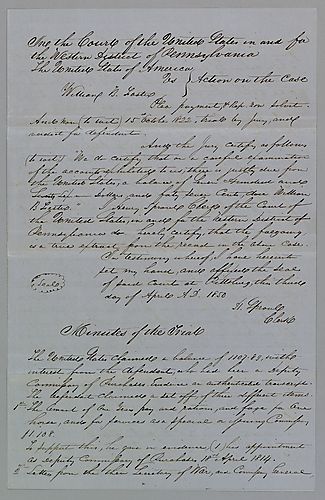 In the Court of the United States in and for
the Western District of Pennsylvania
The United States of America
vs } Action on the Case
William B. Foster
Plea payment, & leave
And now (to wit) 15 October 1822, trial by jury, and
verdict for defendant.
And the jury certify, as follows
(to wit) "We do certify, that on a careful examination
of the accounts exhibited to us, there is justly due from
the United States, a balance of Seven Hundred and
dollars, and forty Seven Cents, to William
B. Foster" I, Henry Sproul, Clerk of the Court of
the United States, in and for the Western District of
Pennsylvania do hereby certify, that the foregoing
is a true extract from the record in the above case.
In testimony whereof I have hereunto
set my hand, and affixed the seal
of said Court at Pittsburg, this third
day of April A.D. 1850
Seal
H. Sproul
Clerk
Minutes of the Trial
The United States claimed a balance of 1107.63, with
interest from the defendant, who had been a Deputy
Commissary of Purchases. Evidence an authenticated transcript.
The defendant claimed a set off of three different items.
1st The amount of pay and rations, and forage for one
horse, and for services as a special or Commissary
$1108.
To support this, he gave in evidence, (1) his appointment
as deputy Commissary of Purchases 18th April 1814.
2d Letters from the then Secretary of War, and Commissary General